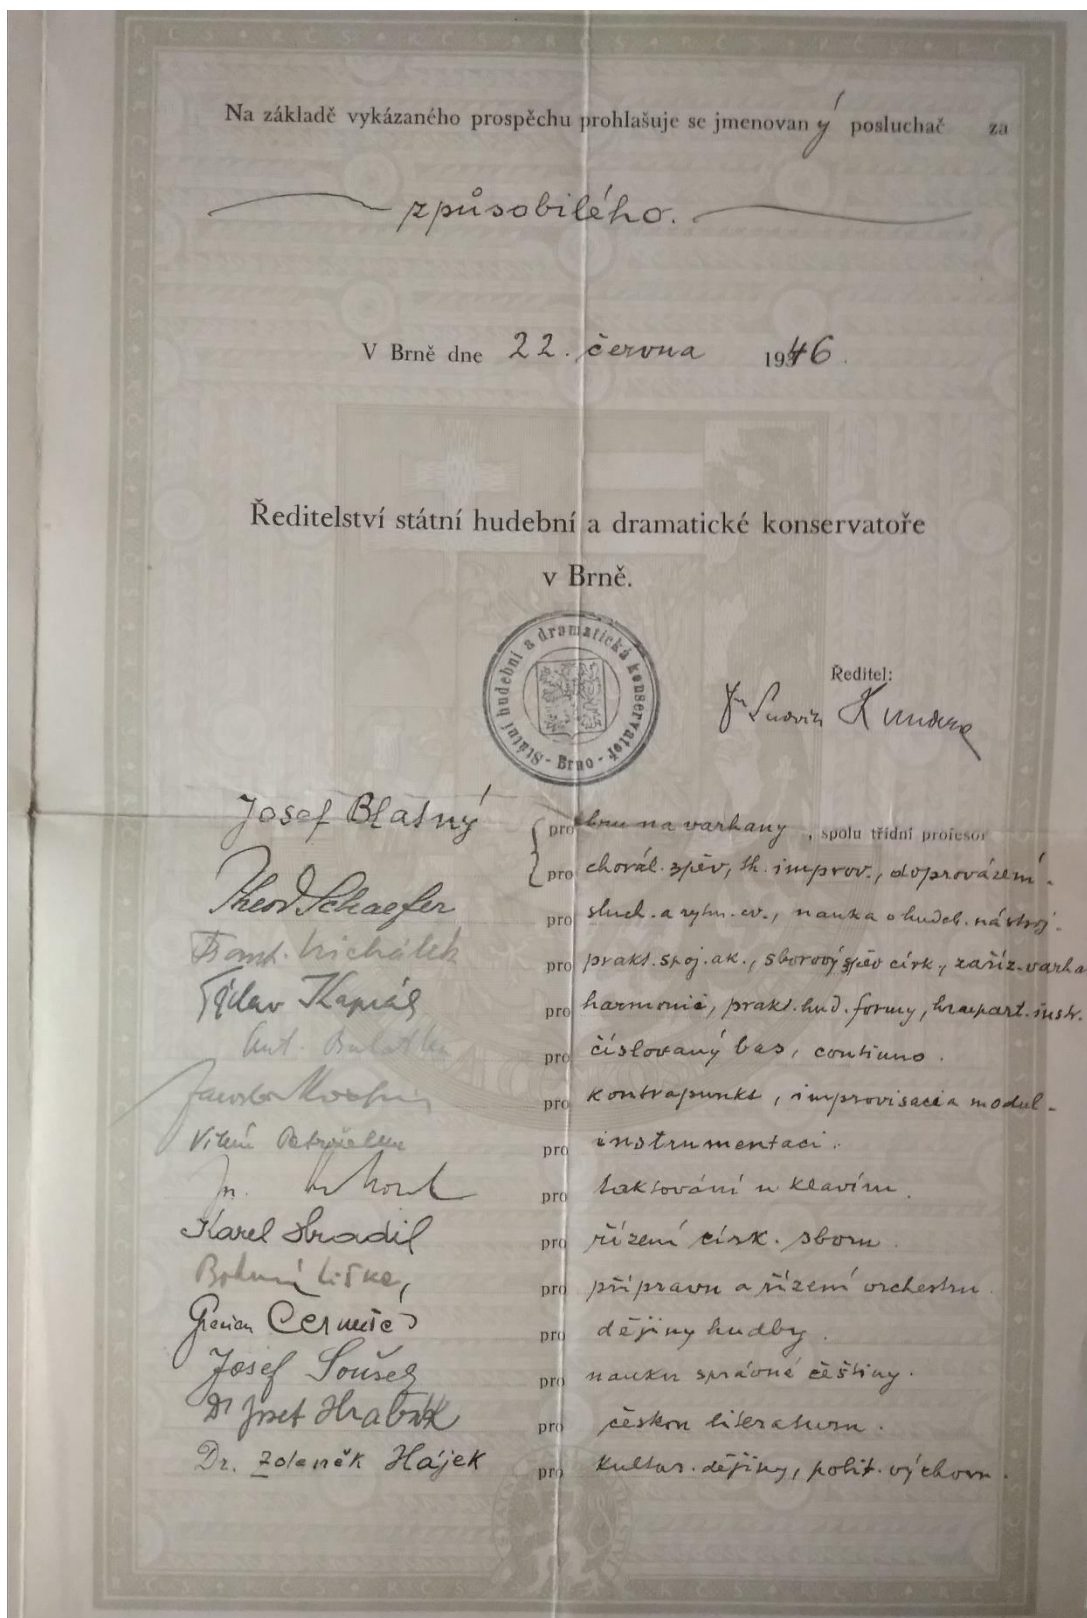 Na základě vykázaného prospěchu prohlašuje se jmenovaný posluchač za
způsobilého.
V Brně dne 22. června 1946.
Ředitelství státní hudební a dramatické konservatoře
v Brně.
Státní hudební a dramatická konservatoř - Brno -
Ředitel:
Dr Ludvík Kundera
Josef Blatný pro hru na varhany, spolu třídní profesor
pro chorál. zpěv, th. improv., doprovázení.
Theod Schaefer pro sluch. a rytm. cv., nauka o hudeb. nástroj.
Frant. Michálek pro prakt. spoj. ak., sborový zpěv círk., zaříz. varha
Kaprál pro harmonie, prakt. hud. formy, hra part. instr.
Ant. Balatka pro číslovaný bas, continuo.
pro kontrapunkt, improvisaci a modul-
Vilém Petrželka pro instrumentaci.
pro taktování u klavíru.
Karel Hradil pro řízení círk. sboru.
Bohumír Liška, pro přípravu a řízení orchestru.
Gracian Černušák pro dějiny hudby.
Josef Soušek pro nauku správné češtiny.
Dr Josef Hrabák pro českou literaturu.
Dr. Zdeněk Hájek pro kultur. dějiny, polit. výchovu.